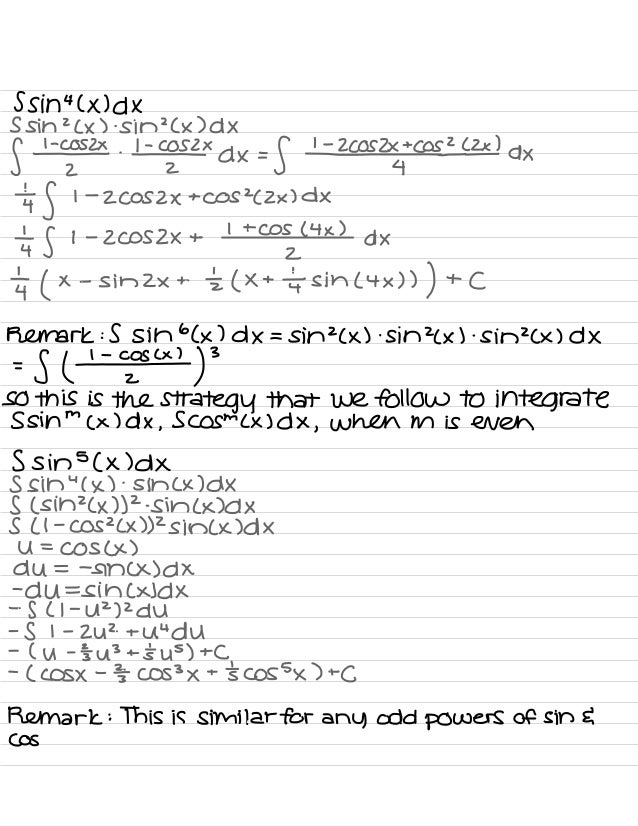 ∫sin⁴(x)dx
∫sin²(x)·sin²(x)dx
∫ (1-cos2x)/2 · (1-cos2x)/2 dx = ∫ (1-2cos2x+cos²(2x))/4 dx
1/4 ∫ 1-2cos2x+cos²(2x)dx
1/4 ∫ 1-2cos2x + (1+cos(4x))/2 dx
1/4 (x - sin2x + 1/2 (x + 1/4 sin(4x))) + C
Remark: ∫ sin⁶(x)dx = sin²(x)·sin²(x)·sin²(x)dx
= ∫ ((1-cos(x))/2)³
so this is the strategy that we follow to integrate
∫sinᵐ(x)dx, ∫cosᵐ(x)dx, when m is even
∫sin⁵(x)dx
∫sin⁴(x)·sin(x)dx
∫(sin²(x))²·sin(x)dx
∫(1-cos²(x))²sin(x)dx
u = cos(x)
du = -sin(x)dx
-du=sin(x)dx
-∫(1-u²)²du
-∫ 1-2u²+u⁴du
-(u - 2/3u³ + 1/5u⁵)+C
-(cosx - 2/3 cos³x + 1/5 cos⁵x)+C
Remark: This is similar for any odd powers of sin &
cos